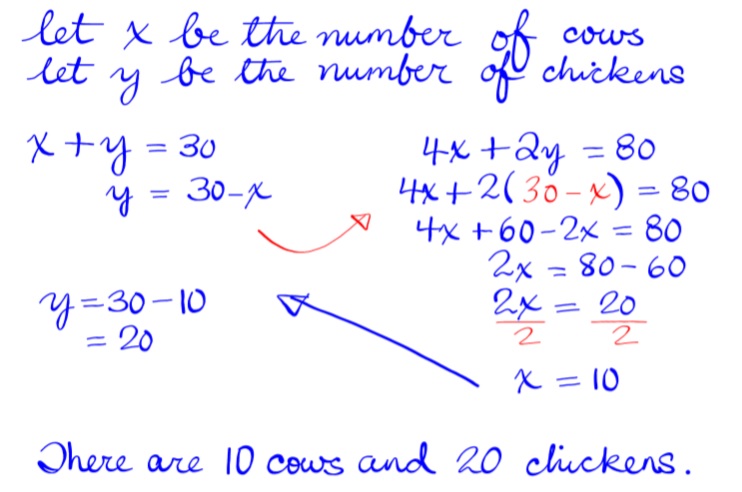 let x be the number of cows
let y be the number of chickens
x + y = 30
y = 30 - x
4x + 2y = 80
4x + 2(30 - x) = 80
4x + 60 - 2x = 80
2x = 80 - 60
2x/2 = 20/2
x = 10
y = 30 - 10
= 20
There are 10 cows and 20 chickens.